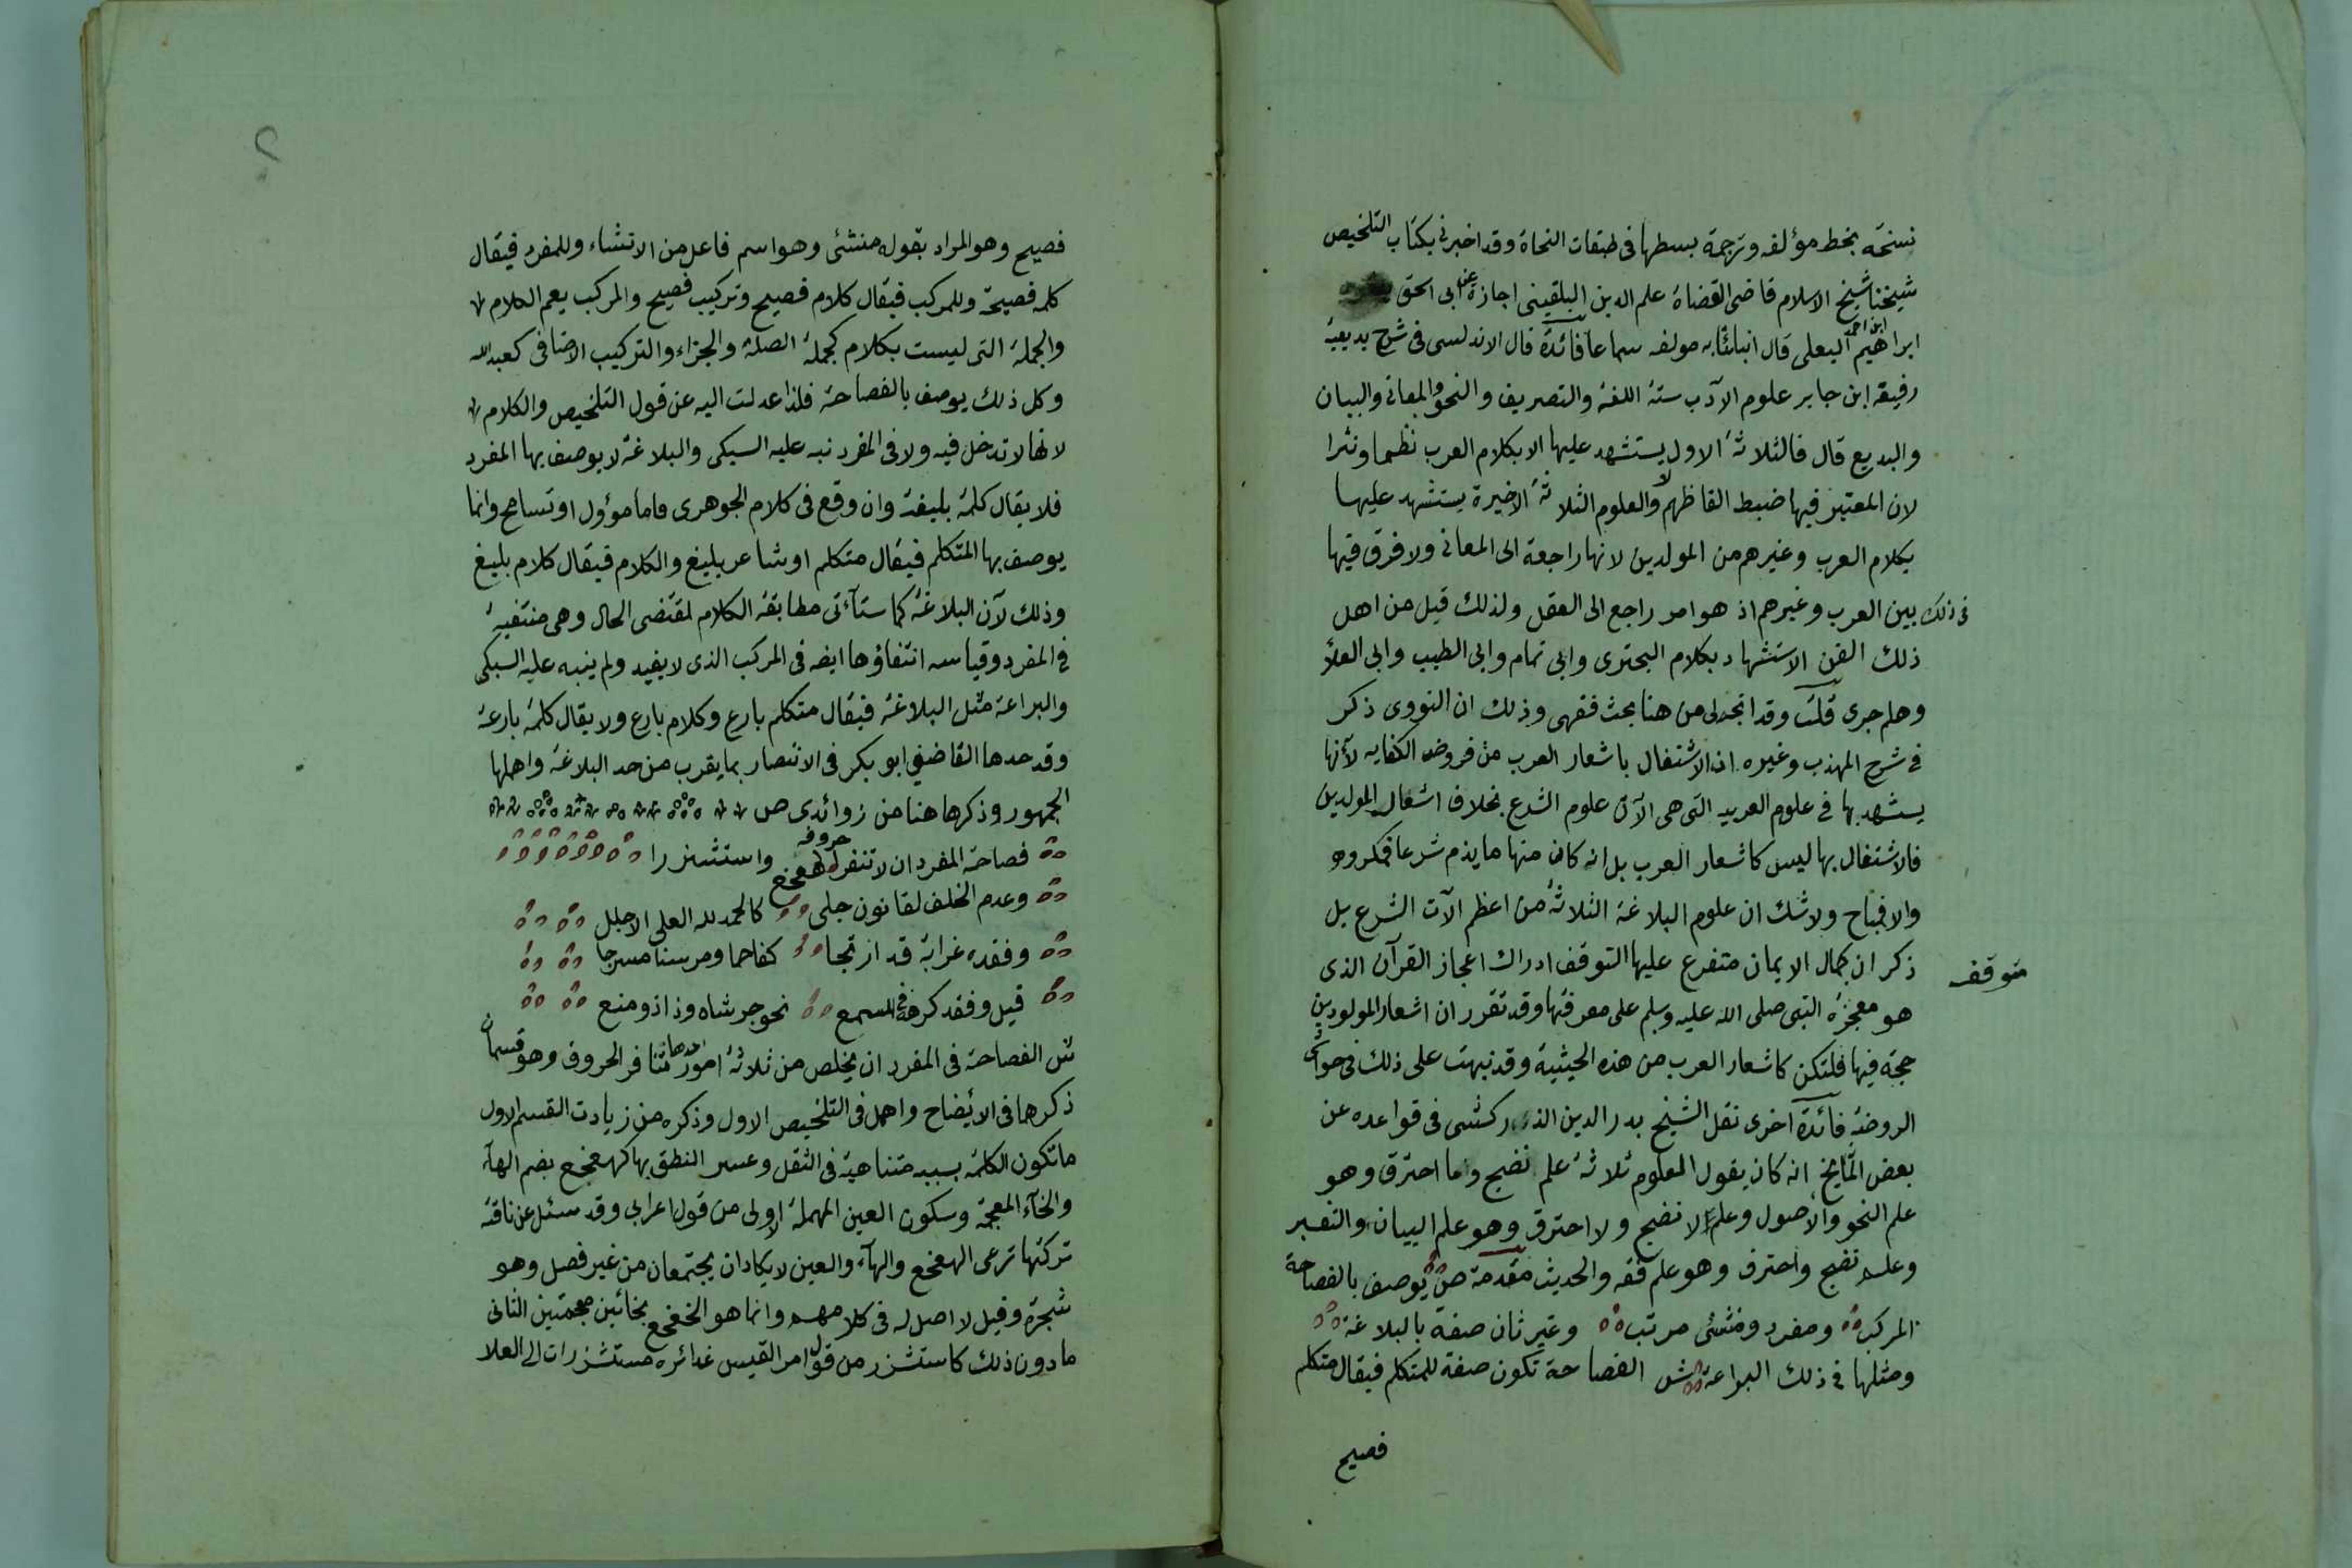 نسخة بخط مؤلفه وترجمة بسطها فى طبقات النحاة وقد اخبرنى بكتاب التلخيص
شيخنا شيخ الاسلام قاضى القضاة علم الدين البلقينى اجازة عن ابى اسحق
ابراهيم ابن احمد البعلى قال انبانا به مولفه سماعا فائدة قال الاندلسى فى شرح بديعية
رفيقه ابن جابر علوم الآدب ستة اللغة والتصريف والنحو والمعانى والبيان
والبديع قال فالثلاثة الاول لا يستشهد عليها الا بكلام العرب نظما ونثرا
لان المعتبر فيها ضبط الفاظهم والعلوم الثلاثة الاخيرة يستشهد عليها
بكلام العرب وغيرهم من المولدين لانها راجعة الى المعانى ولا فرق فيها
فى ذلك بين العرب وغيرهم اذ هو امر راجع الى العقل ولذلك قبل من اهل
ذلك الفن الاستشهاد بكلام البحترى وابى تمام وابى الطيب وابى العلآ
وهلم جرى قلت وقد انجد لى من هنا بحث فقهى وذلك ان النووى ذكر
فى شرح المهذب وغيره ان الاشتغال باشعار العرب من فروض الكفايه لآنها
يستشهد بها فى علوم العربيه التى هى الآت علوم الشرع بخلاف اشعار المولدين
فالاشتغال بها ليس كاشعار العرب بل ان كان منها ما يذم شرعا فمكروه
والا فمباح ولا شك ان علوم البلاغة الثلاثة من اعظم الآت الشرع بل
ذكر ان كمال الايمان متفرع عليها التوقف ادراك اعجاز القرآن الذى
متوقف
هو معجزة النبى صلى الله عليه وسلم على معرفتها وقد تقرر ان اشعار المولودين
حجة فيها فلتكن كاشعار العرب من هذه الحيثية وقد نبهت على ذلك فى حواشى
الروضة فائدة اخرى نقل الشيخ بدر الدين الذركشى فى قواعده عن
بعض المآيخ انه كان يقول العلوم ثلاثة علم نضج وما احترق وهو
علم النحو والاصول وعلم لا نضج ولا احترق وهو علم البيان والتفسير
وعلم نضج واحترق وهو علم فقه والحديث مقدمة ص يوصف بالفصاحة
المركب ومفرد ومنشئ مرتب وغير ثان صفه بالبلاغة
ومثلها فى ذلك البراعة ش الفصاحة تكون صفة للمتكلم فيقال متكلم
فصيح
فصيح وهو المراد بقوله منشئ وهو اسم فاعل من الانشاء وللمفرد فيقال
كلمه فصيحة وللمركب فيقال كلام فصيح وتركيب فصيح والمركب يعم الكلام
والجملة التى ليست بكلام كجملة الصلة والجزاء والتركيب الاضافى كعبد الله
وكل ذلك يوصف بالفصاحة فلذا عدلت اليه عن قول التلخيص والكلام
لانها لا تدخل فيه ولا فى المفرد نبه عليه السبكى والبلاغة لا يوصف بها المفرد
فلا يقال كلمة بليغة وان وقع فى كلام الجوهرى فاما مؤول او تسامح وانما
يوصف بها المتكلم فيقال متكلم او شاعر بليغ والكلام فيقال كلام بليغ
وذلك لآن البلاغة كما ستآءتى مطابقة الكلام لمقتضى الحال وهى منتفية
فى المفرد وقياسه انتفاؤها ايضه فى المركب الذى لا يفيد ولم ينبه عليه السبكى
والبراعة مثل البلاغة فيقال متكلم بارع وكلام بارع ولا يقال كلمة بارعة
وقد حدها القاضى ابو بكر فى الانتصار بما يقرب من حد البلاغة واهملها
الجمهور وذكرها هنا من زوائدى ص
فصاحة المفرد ان لا تنفرا حروفه كهعخع واستشزرا
وعدم الخلف لقانون جلى كالحمد لله العلى الاجلل
وفقده غرابة قد ارتجا كفاحما ومرسنا مسرجا
قيل وفقد كرهه فى السمع نحو جرشاه وذا ذو منع
ش الفصاحة فى المفرد ان يخلص من ثلاثة امور احدها تنافر الحروف وهو قسمان
ذكرها فى الايضاح واهمل فى التلخيص الاول وذكره من زيادت القسم الاول
ما تكون الكلمة بسببه متناهية فى الثقل وعسر النطق بها كهعخع بضم الهآء
والخآء المعجمة وسكون العين المهملة الاولى من قول اعرابى وقد سئل عن ناقته
تركتها ترعى الهعخع والهآء والعين لا يكادان يجتمعان من غير فصل وهو
شجرة وقيل لا اصل له فى كلامهم وانما هو الخعخع بخائين معجمتين الثانى
ما دون ذلك كاستشزر من قول امر القيس غدائره مستشزرات الى العلا